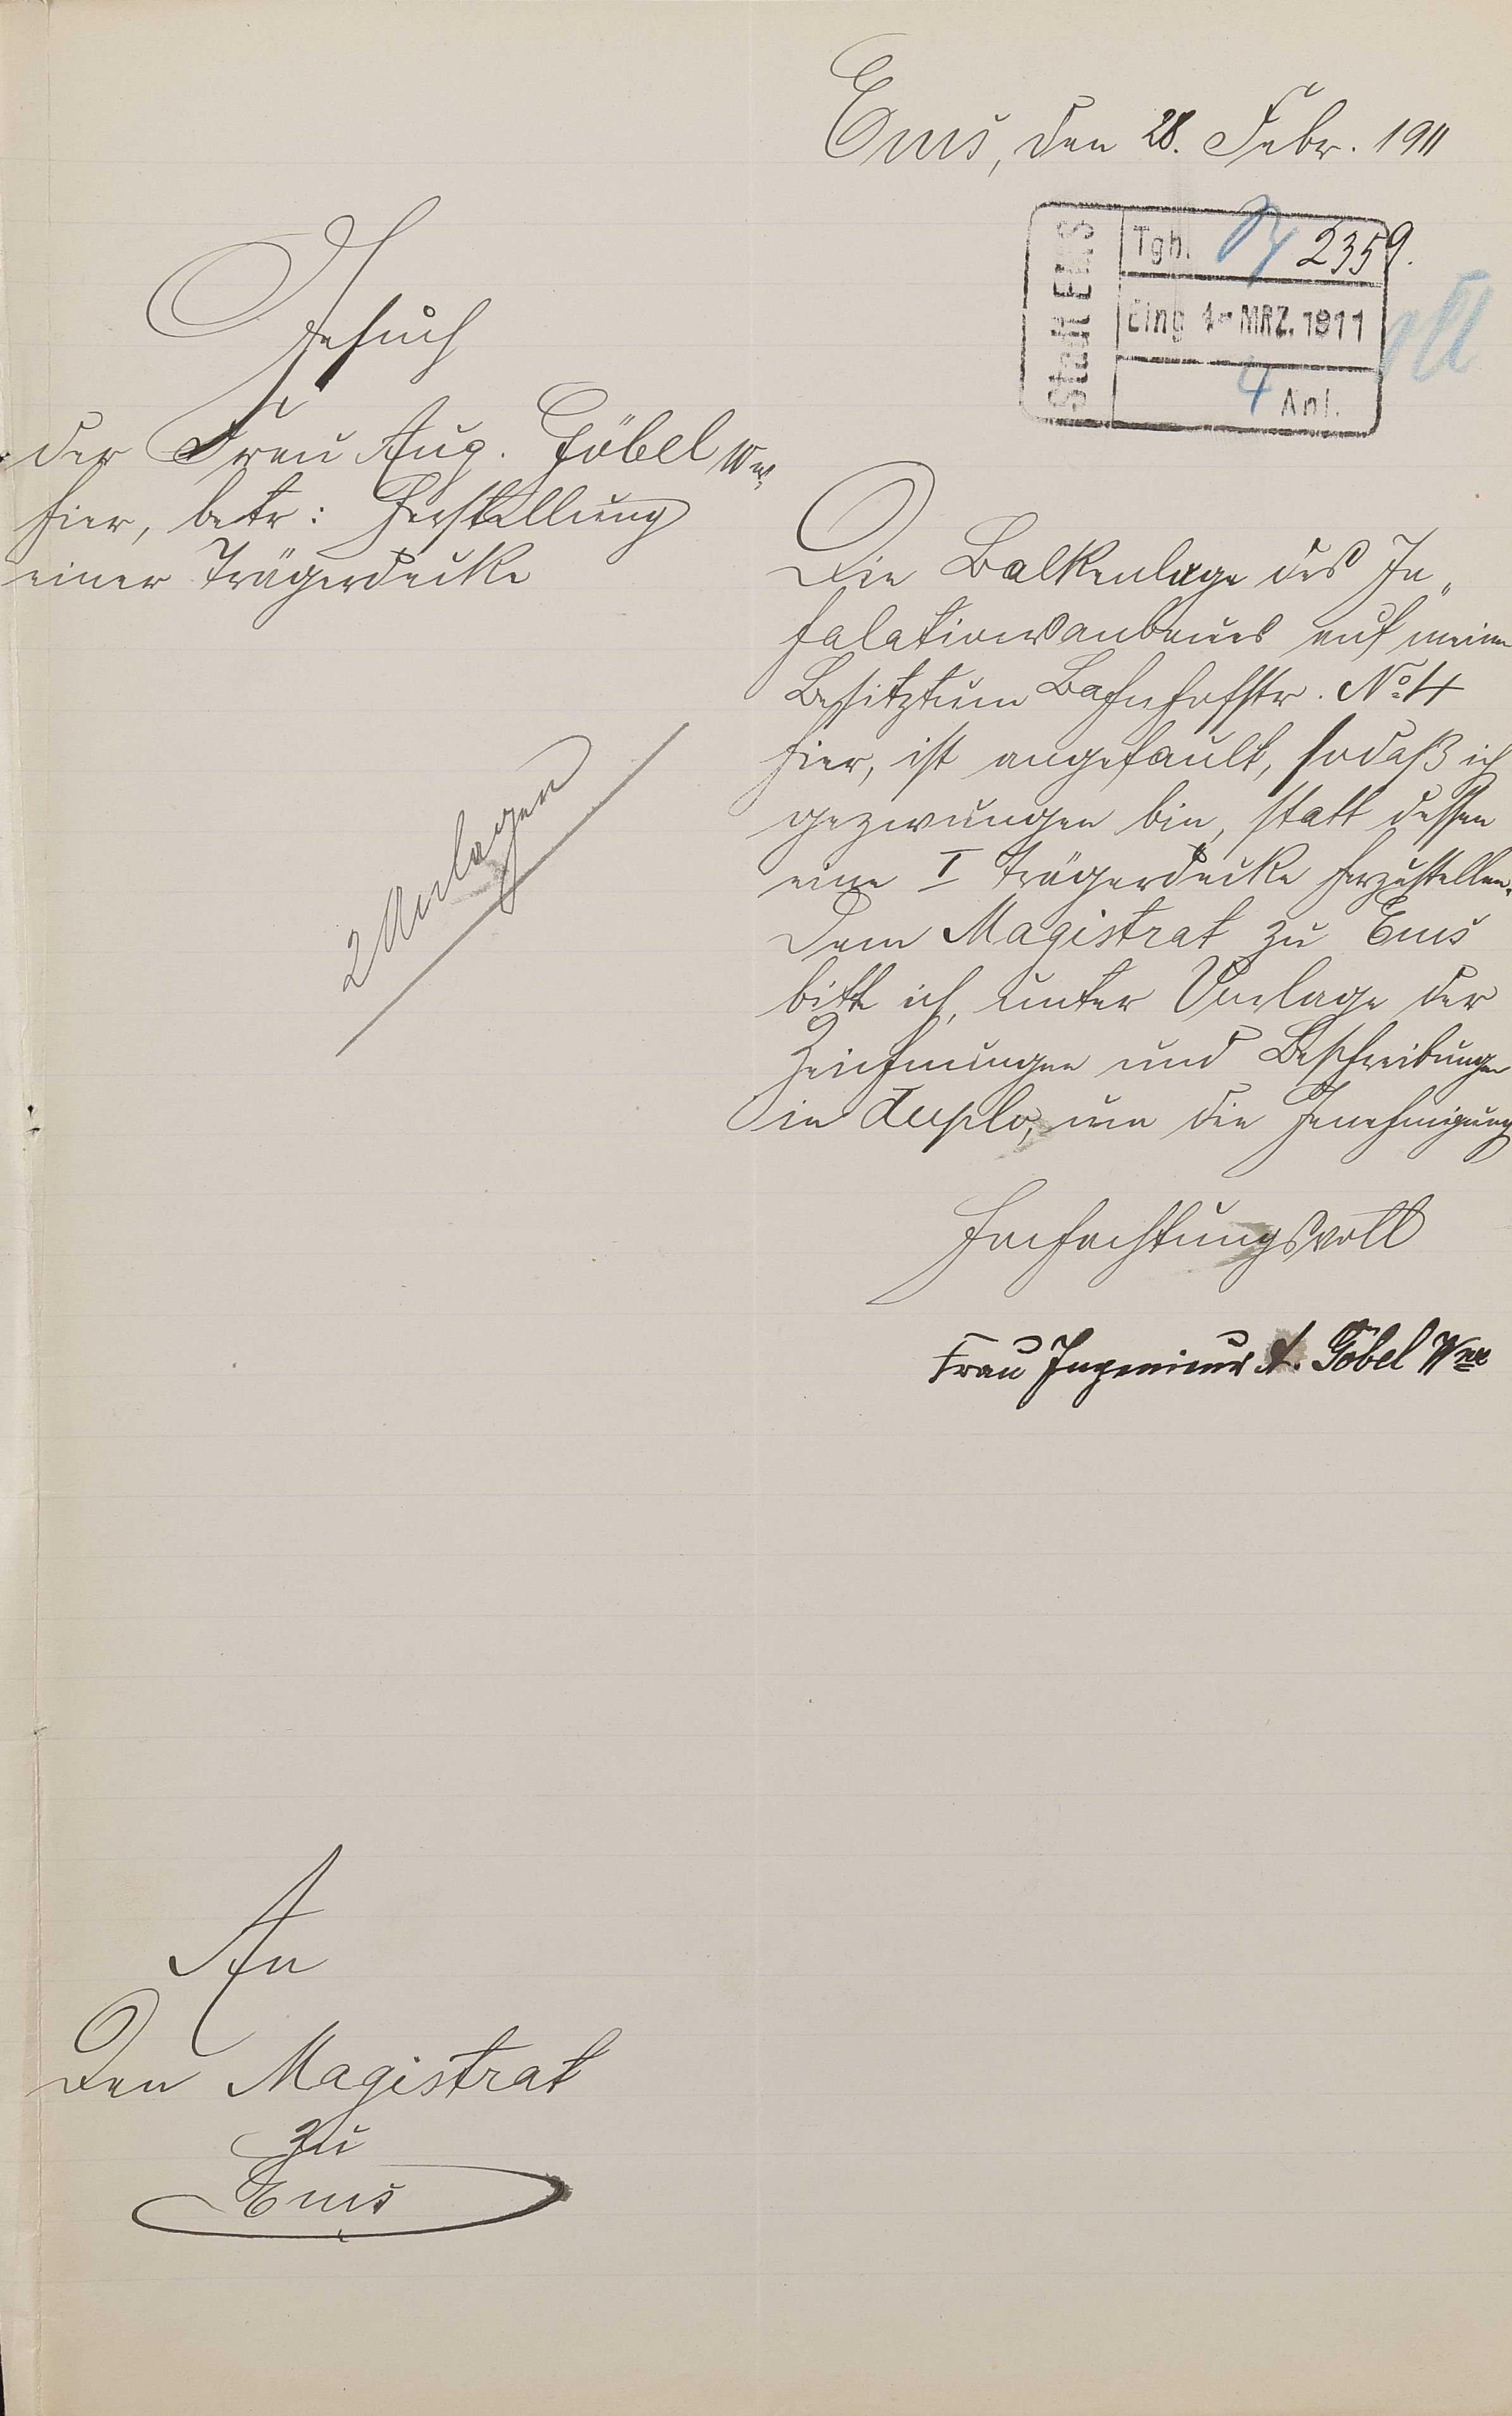 Ems, den 28. Febr. 1911
Stadt EMS
Tgb. 2359.
Eing 1- MRZ. 1911
4 Anl.
Gesuch
der Frau Aug. Göbel Ww.
hier, betr: Herstellung
einer Trägerdecke
2 Anlagen
Die Balkenlage des In„
halationsanbaues auf meinem
Besitztum Bahnhofstr. No 4
hier, ist angefault, sodaß ich
gezwungen bin, statt dessen
eine I Trägerdecke herzustellen.
Dem Magistrat zu Ems
bitte ich, unter Vorlage der
Zeichnungen und Beschreibungen
in duplo, um die Genehmigung
Hochachtungsvoll
Frau Ingenieur A. Göbel Wwe
An
den Magistrat
zu
Ems